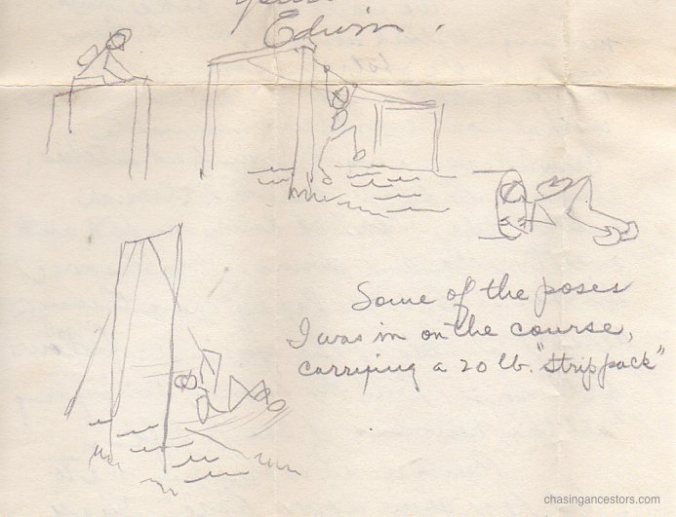 Edwin.
Some of the poses
I was in on the course,
carrying a 20 lb. "strip pack"
chasingancestors.com